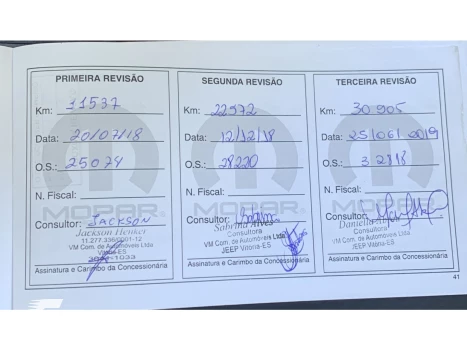 PRIMEIRA REVISÃO
Km: 11537
Data: 20/07/18
O.S.: 25074
N. Fiscal:
MOPAR
Consultor: JACKSON
Jackson Henker
VM Com. de Automóveis Ltda
Vitória-ES
Assinatura e Carimbo da Concessionária
SEGUNDA REVISÃO
Km: 22572
Data: 12/12/18
O.S.: 28220
N. Fiscal:
MOPAR
Consultor:
Sabrina Alves
Consultora
VM Com. de Automóveis Ltda
JEEP Vitória-ES
Assinatura e Carimbo da Concessionária
TERCEIRA REVISÃO
Km: 30905
Data: 25/06/2019
O.S.: 32818
N. Fiscal:
MOPAR
Consultor:
Daniella
Consultora
VM Com. de Automóveis Ltda
JEEP Vitória-ES
Assinatura e Carimbo da Concessionária
41